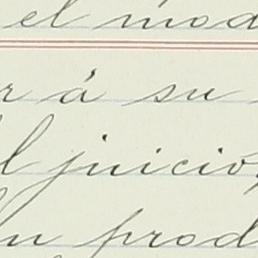 el mod
r á su
l juicio,
n prod